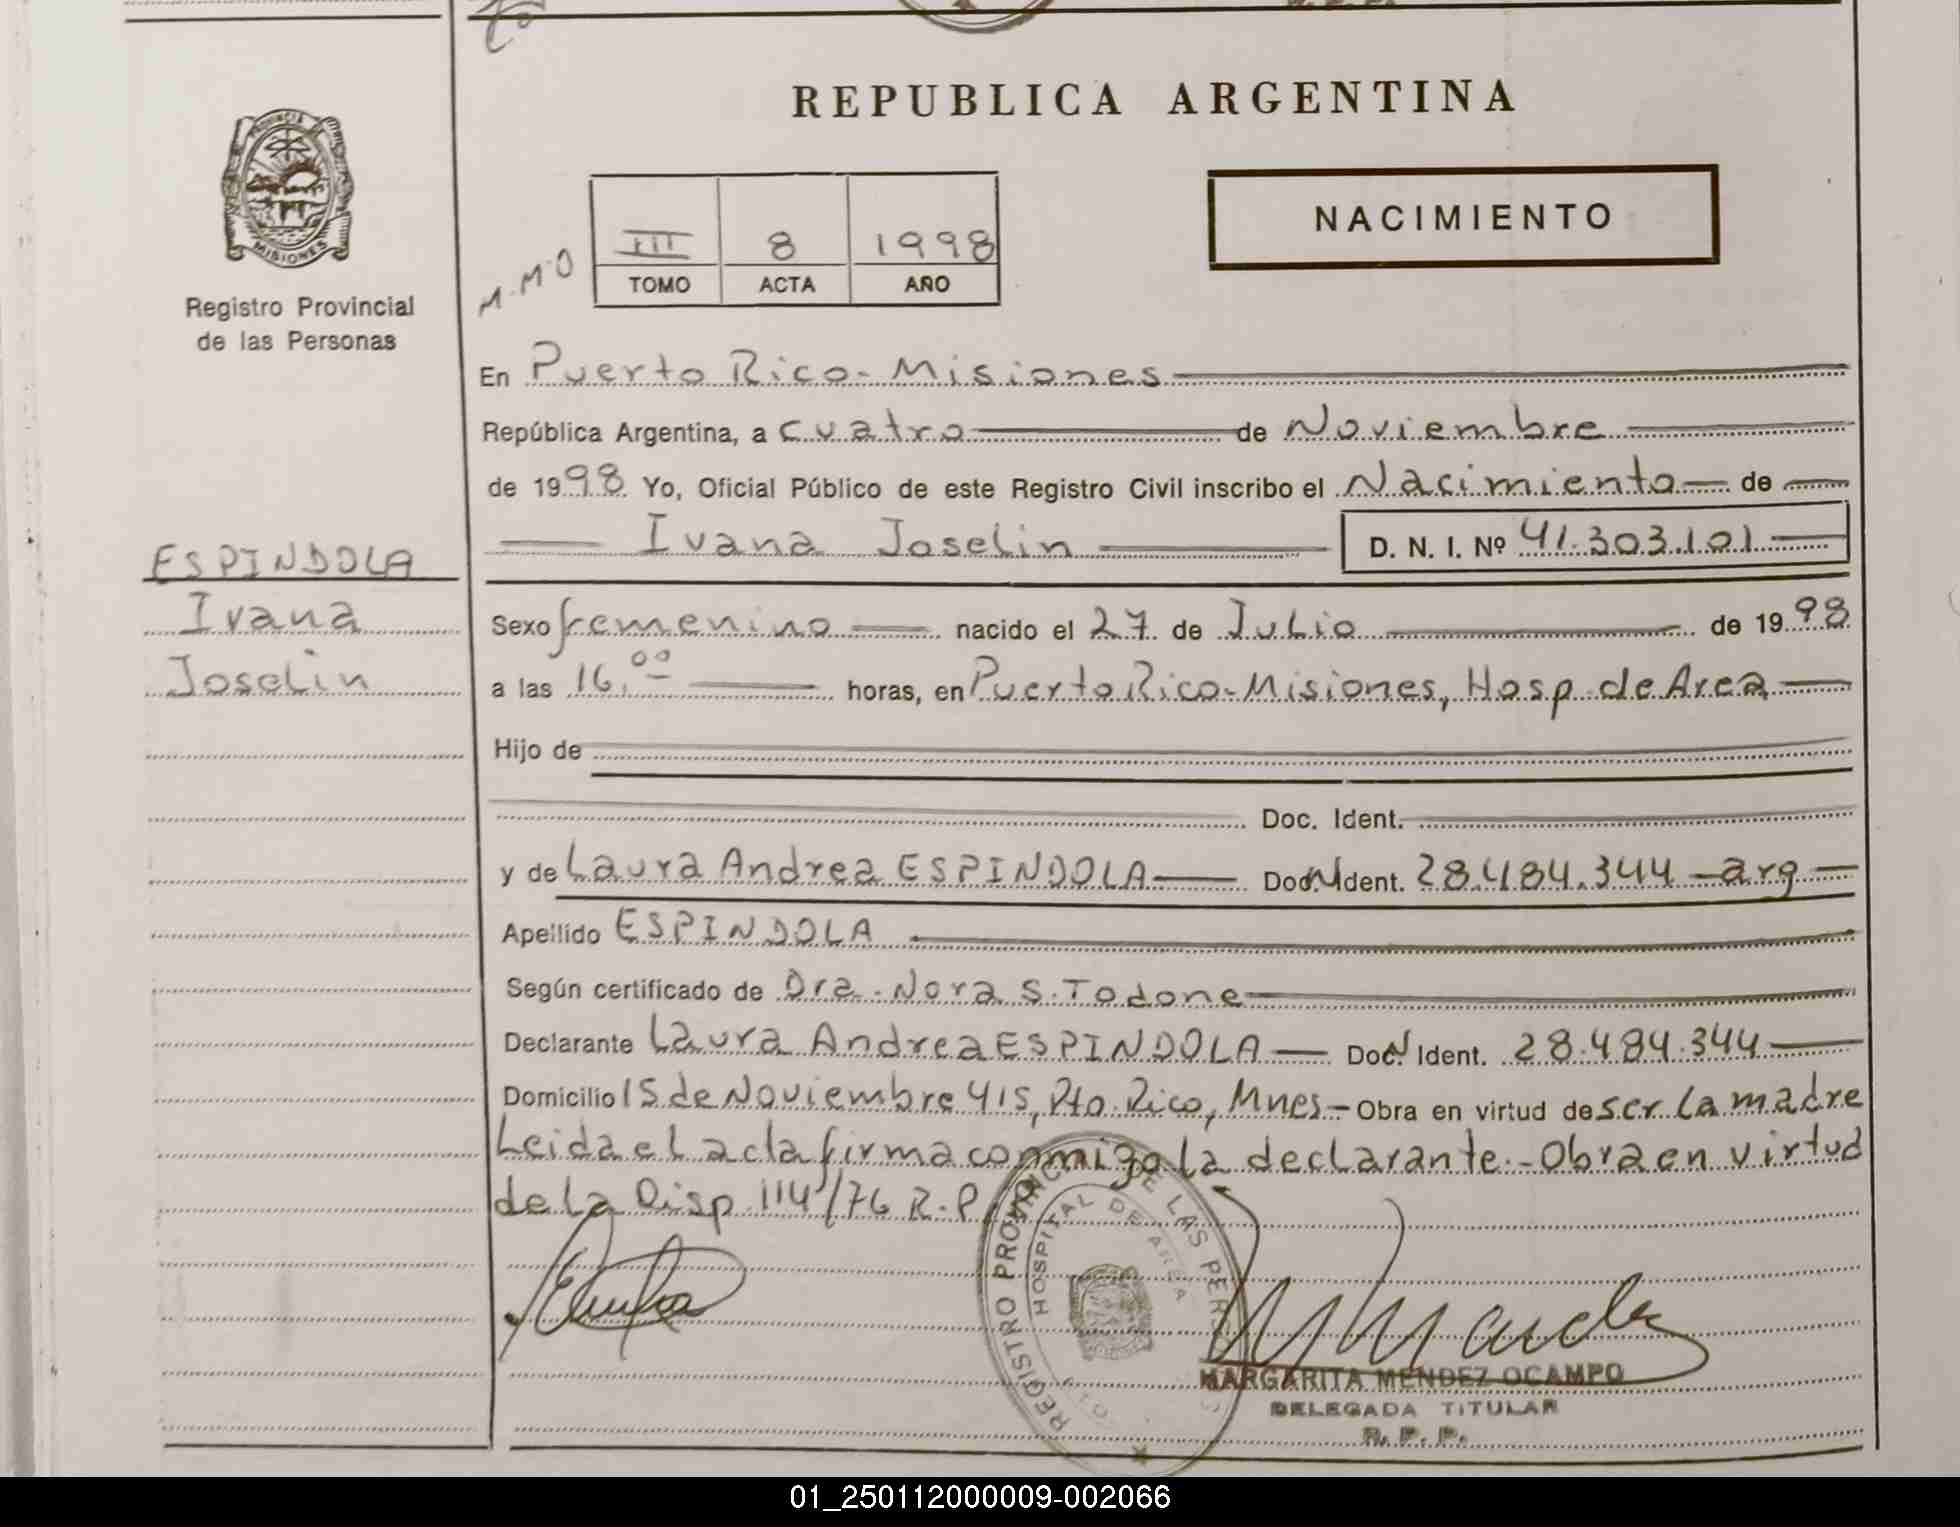 REPUBLICA ARGENTINA
PROVINCIA DE
MISIONES
Registro Provincial
de las Personas
NACIMIENTO
M.M.O
III 8 1998
TOMO ACTA AÑO
En Puerto Rico - Misiones
República Argentina, a cuatro de Noviembre
de 1998 Yo, Oficial Público de este Registro Civil inscribo el Nacimiento de
Ivana Joselin D. N. I. Nº 41.303.101
ESPINDOLA
Ivana
Joselin
Sexo femenino nacido el 27 de Julio de 1998
a las 16,00 horas, en Puerto Rico - Misiones, Hosp. de Area
Hijo de
Doc. Ident.
y de Laura Andrea ESPINDOLA Doc. Ident. 28.484.344 - arg
Apellido ESPINDOLA
Según certificado de Dra. Nora S. Todone
Declarante Laura Andrea ESPINDOLA Doc. Ident. 28.484.344
Domicilio 15 de Noviembre 415, Pto. Rico, Mnes.- Obra en virtud de ser la madre
Leida el acta firma conmigo la declarante.- Obra en virtud
de la Disp. 114/76 R.P.
REGISTRO PROVINCIAL DE LAS PERSONAS
HOSPITAL DE AREA
MARGARITA MENDEZ OCAMPO
DELEGADA TITULAR
R. P. P.
01_250112000009-002066